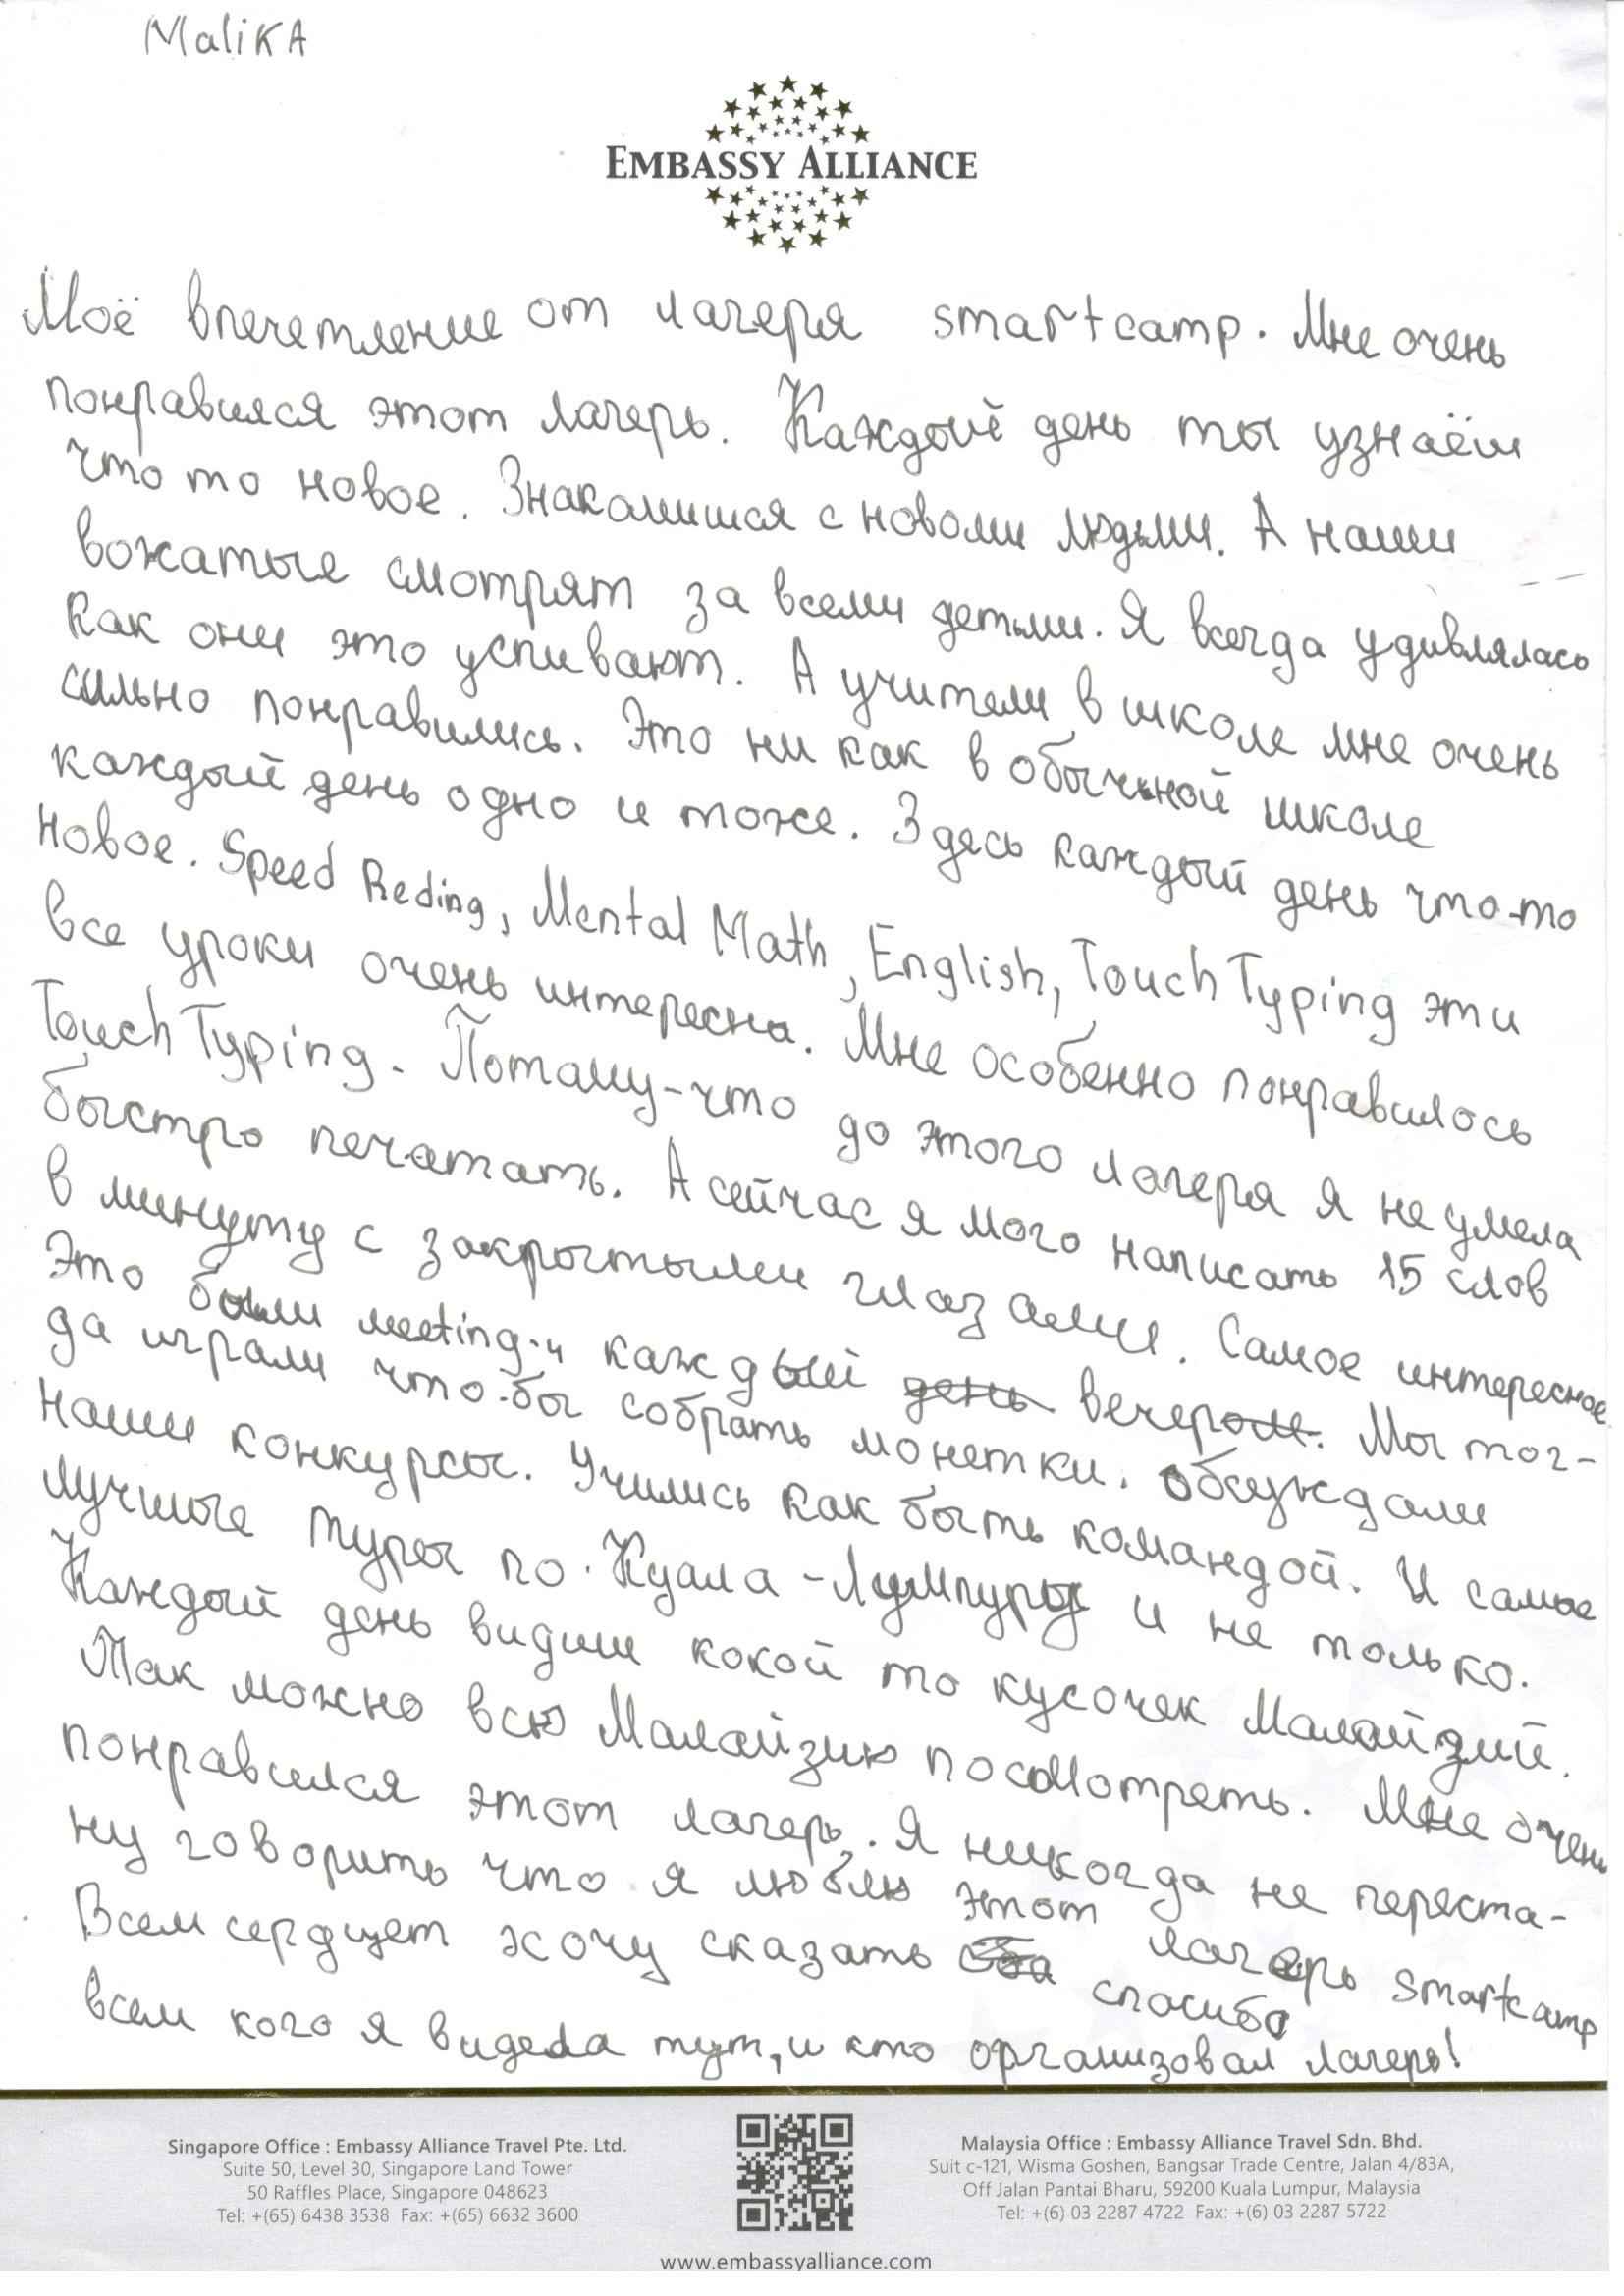 MaliKA
EMBASSY ALLIANCE
Моё впечетление от лагеря smartcamp. Мне очень
понравился этот лагерь. Каждый день ты узнаёш
что то новое. Знакомишся с новоми людьми. А наши
вожатые смотрят за всеми детьми. Я всегда удивлялась
как они это успивают. А учители в школе мне очень
сильно понравились. Это ни как в обычной школе
каждый день одно и тоже. Здесь каждый день что-то
новое. Speed Reding, Mental Math, English, Touch Typing эти
все уроки очень интересна. Мне особенно понравилось
Touch Typing. Потаму-что до этого лагеря я не умела
быстро печатать. А сейчас я мого написать 15 слов
в минуту с закрытыми глазами. Самое интересное
Это были meeting-и каждый день вечером. Мы тог-
да играли что-бы собрать монетки. Обсуждали
наши конкурсы. Учились как быть командой. И самые
лучшые туры по Куала-Лумпуры и не только.
Каждый день видиш кокой то кусочек Малайзий.
Так можно всю Малайзию посмотреть. Мне очень
понравился этот лагерь. Я никогда не переста-
ну говорить что я люблю этот лагерь smartcamp
Всем сердцем хочу сказать спосибо
всем кого я видела тут, и кто организовал лагерь!
Singapore Office : Embassy Alliance Travel Pte. Ltd.
Suite 50, Level 30, Singapore Land Tower
50 Raffles Place, Singapore 048623
Tel: +(65) 6438 3538 Fax: +(65) 6632 3600
Malaysia Office : Embassy Alliance Travel Sdn. Bhd.
Suit c-121, Wisma Goshen, Bangsar Trade Centre, Jalan 4/83A,
Off Jalan Pantai Bharu, 59200 Kuala Lumpur, Malaysia
Tel: +(6) 03 2287 4722 Fax: +(6) 03 2287 5722
www.embassyalliance.com